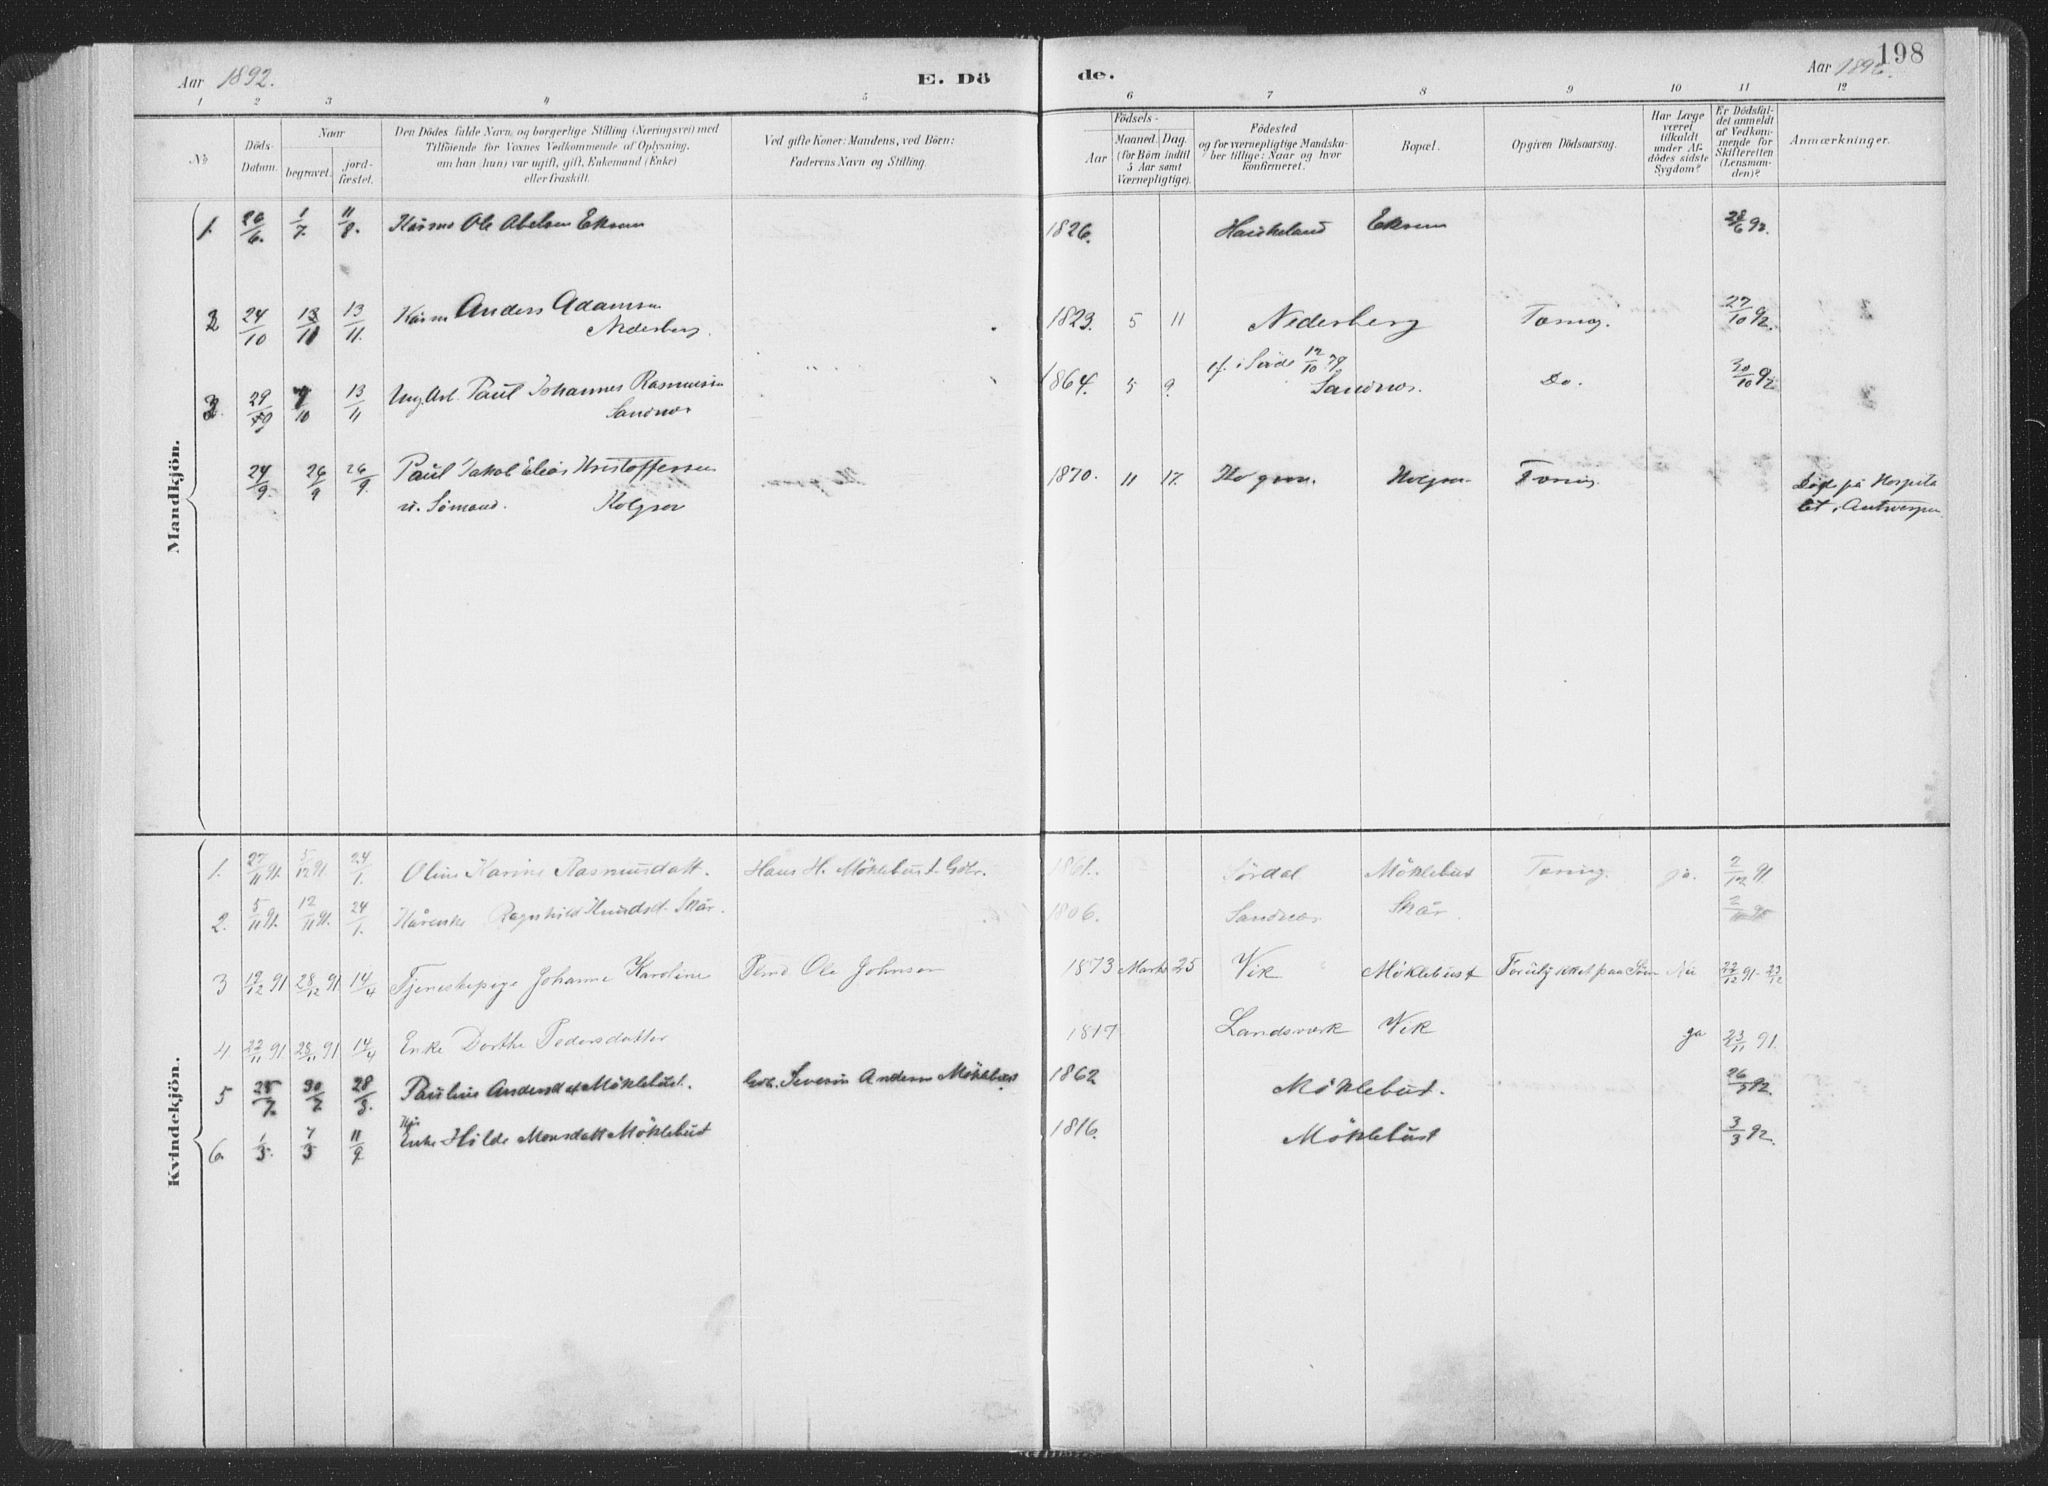 198
Aar 1892.
E. Dö
de.
Aar 1892.
1 2 3 4 5 6 7 8 9 10 11 12
No
Döds-Datum.
Naar
begravet.
jord-fæstet.
Den Dödes fulde Navn, og borgerlige Stilling (Næringsvei) med
Tilföiende for Voxnes Vedkommende af Oplysning,
om han (hun) var ugift, gift, Enkemand (Enke)
eller fraskilt.
Ved gifte Koner: Mandens, ved Börn:
Faderens Navn og Stilling.
Födsels-
Aar
Maaned. Dag.
(for Börn indtil
5 Aar samt
Værnepligtige).
Födested
og for værnepligtige Mandska-
ber tillige: Naar og hvor
konfirmeret.
Bopæl.
Opgiven Dödsaarsag.
Har Læge
været
tilkaldt
under Af-
dödes sidste
Sygdom?
Er Dödsfal-
det anmeldt
af Vedkom-
mende for
Skifteretten
(Lensman-
den)?
Anmærkninger.
Mandkjön.
1. 26/6. 1/7 11/8. Kårmd Ole Abelsen Eksem 1826. Haukeland Eksem 28/6 92.
2 24/10 13/11 13/11. Kårm Anders Adamsen
Nederberg. 1823. 5 11 Nederberg Tæring. 27/10 92.
3 29/9 7/10 13/11 Ung. Arb. Paul Johannes Rasmussen
Sandnes 1864. 5 9. cf. i Søvde 12/10 79
Sandnes. Do. 30/10 92
24/9. 26/9 26/9. Paul Jakob Elias Kristoffersen
u. Sömand. Kolgrov 1870. 11 17. Kolgrov. Kolgrov Tæring. Död på Hospita
let i Antwerpen.
Kvindekjön.
1. 27/11 91. 5/12 91. 24/1. Oline Karine Rasmusdatt. Hans H. Möklebust Gbr. 1861. Sördal Möklebust Tæring. ja. 2/12 91.
2. 5/11 91. 12/11 91. 24/1. Kårenke Ragnhild Knudsd. Skår. 1806. Sandnes Skår.
3 19/12 91 28/12 91 14/4 Tjenestepige Johanne Karoline Plmd Ole Johnsen 1873 Marts 25 Vik Möklebust Forulykket paa Söen Nei 22/12 91 - 23/12
4 22/11 91 28/11 91 14/4 Enke Dorthe Pedersdatter 1817 Landsverk Vik ja 23/11 91.
5 25/7. 30/7 28/8. Pauline Andersdat Möklebust. Gbr. Severin Andersen Möklebust 1862 Möklebust. 26/7 92.
6. 1/3. 7/3 11/9 Enke Hilde Monsdatt Möklebust 1816. Möklebust 3/3 92.